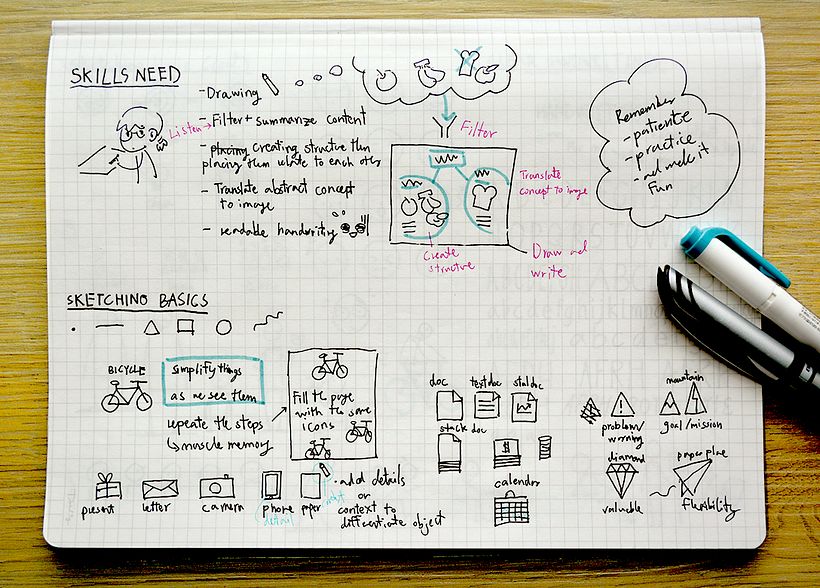 SKILLS NEED
- Drawing
- Filter + summarize content
- placing creating structure then
placing them relate to each other
- Translate abstract concept
to image
- readable handwriting
Listen
Filter
Translate
concept to image
Create
structure
Draw and
write
Remember
- patience
- practice
- and make it
Fun
SKETCHING BASICS
BICYCLE
simplify things
as we see them
repeate the steps
muscle memory
Fill the page
with the same
icons
present
letter
camera
phone
detail
paper
• add details
or
context to
differentiate object
doc
text doc
stat doc
stack doc
$
calendar
problem/
warning
mountain
goal/mission
diamond
valuable
paper plane
flexibility